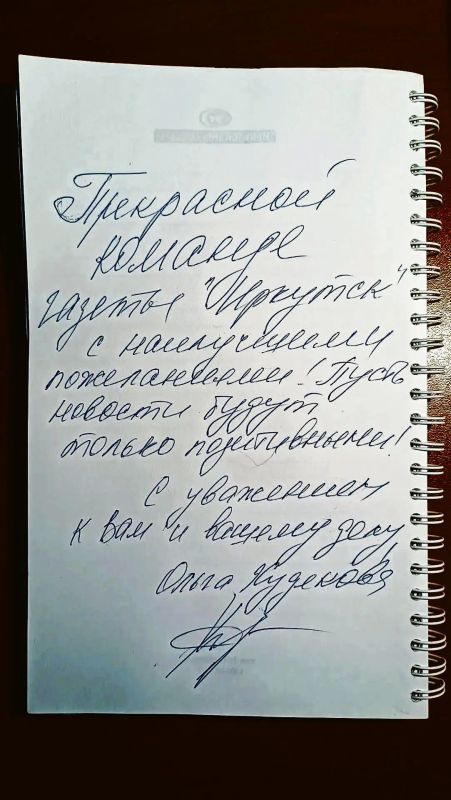 Прекрасной
команде
газеты "Иркутск"
с наилучшими
пожеланиями! Пусть
новости будут
только позитивными!
С уважением
к Вам и вашему делу
Ольга